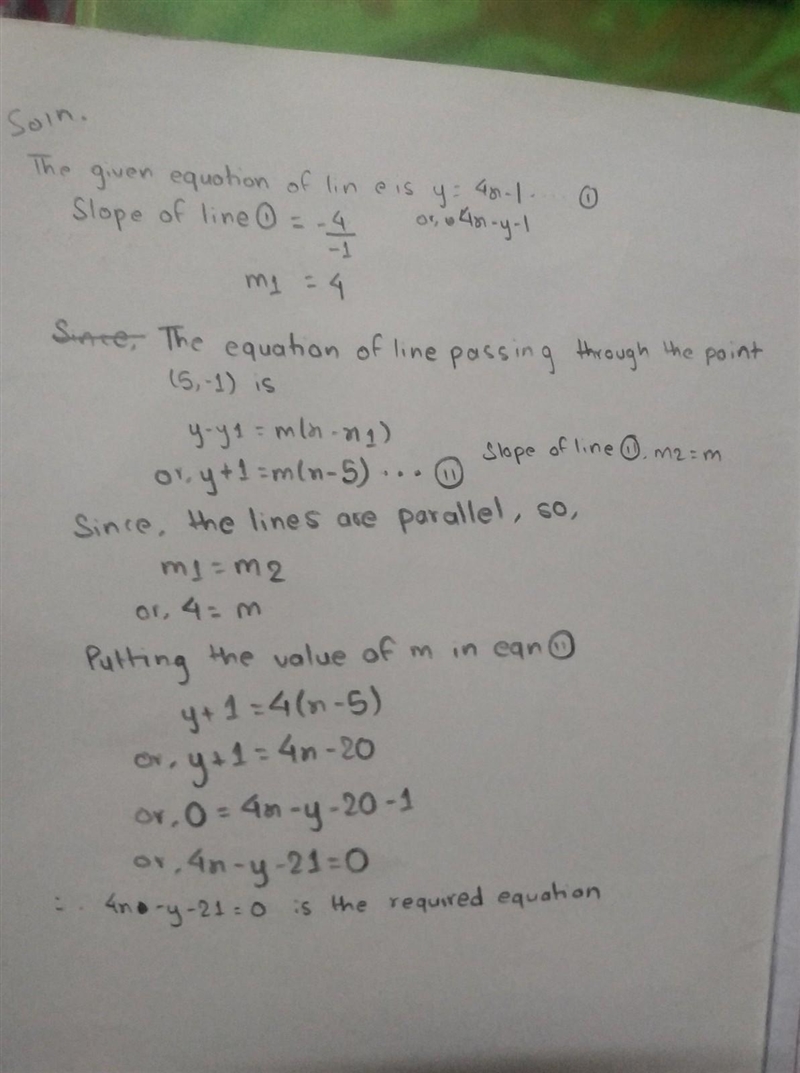 Soln.
The given equation of lin e is y = 4x-1 .... ①
Slope of line ① = -4/-1 or, 4x-y-1
m1 = 4
Since, The equation of line passing through the point
(5,-1) is
y-y1 = m(x-x1)
or, y+1 = m(x-5) ... ⑪ Slope of line ⑪, m2 = m
Since, the lines are parallel, so,
m1 = m2
or, 4 = m
Putting the value of m in eqn ⑪
y+1 = 4(x-5)
or, y+1 = 4x-20
or, 0 = 4x-y-20-1
or, 4x-y-21=0
∴ 4x-y-21=0 is the required equation